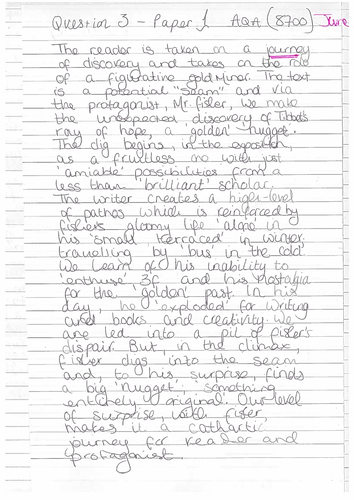 Question 3 - Paper 1 AQA (8700) June
The reader is taken on a journey
of discovery and takes on the role
of a figurative gold Miner. The text
is a potential "Seam" and via
the protagonist, Mr. Fisher, we make
the unexpected discovery of Tibbet's
ray of hope, a golden 'nugget'.
The dig begins, in the exposition,
as a fruitless one with just
'amiable' possibilities from a
less than 'brilliant' scholar.
The writer creates a high-level
of pathos which is reinforced by
Fisher's gloomy life 'alone' in
his 'small, terraced' in winter,
travelling by 'bus' in the 'cold'.
We learn of his inability to
'enthuse' 3C and his Nostalgia
for the 'golden' past. In his
day, he 'exploded' for writing
and books and creativity. We
are led into a pit of Fisher's
dispair. But, in the climax,
Fisher digs into the seam
and, to his surprise, finds
a big 'nugget', 'something
entirely original'. Our level
of surprise, with Fisher,
makes it a cathartic
journey for reader and
protagonist.